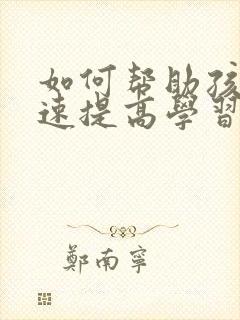 如何帮助孩
速提高學習
鄭南寧